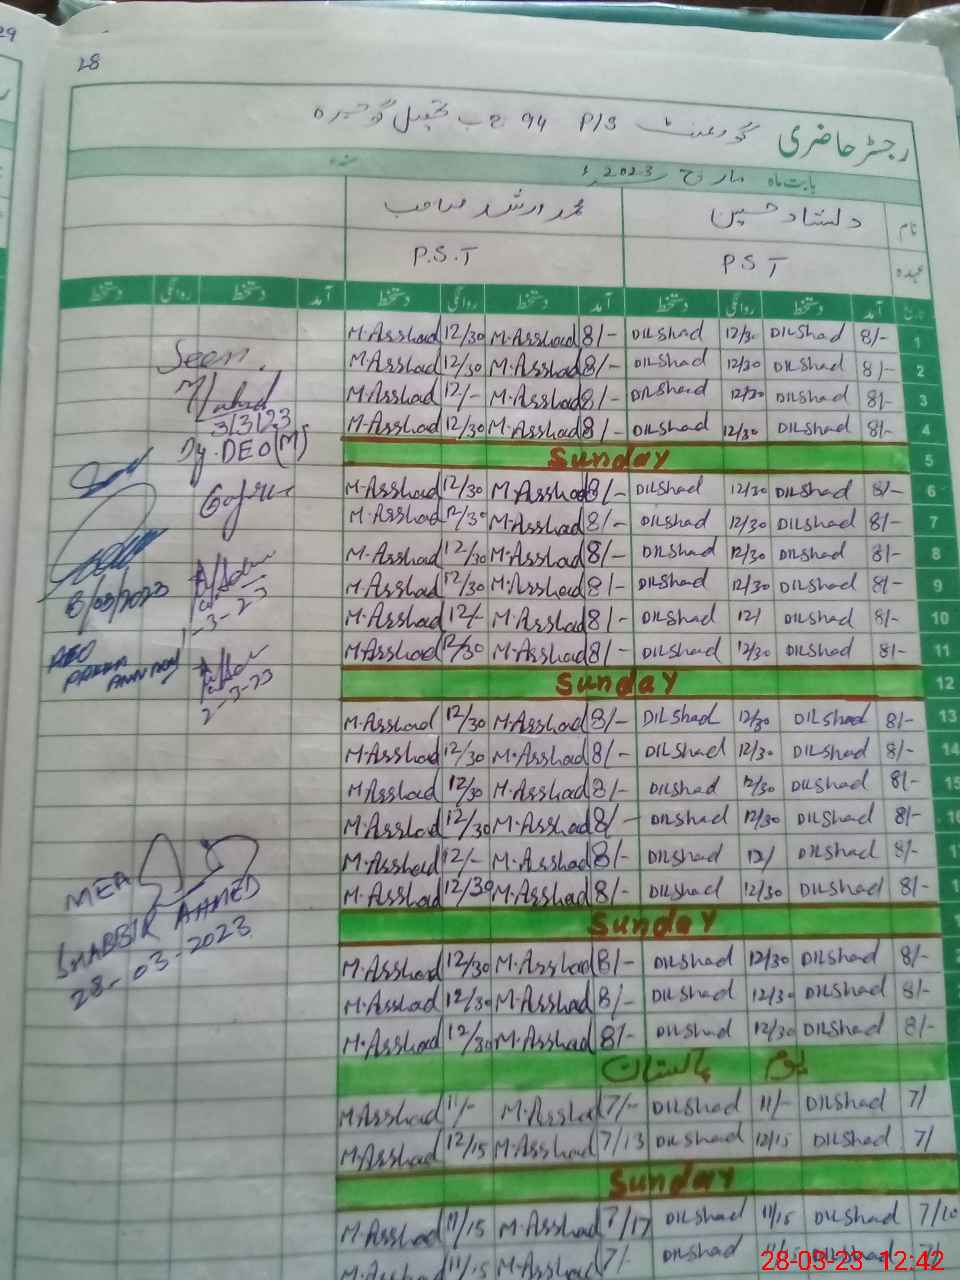 29
28
رجسٹر حاضری گورنمنٹ P/S 94 ج ب تحصیل گوجرہ
بابت ماہ مارچ 2023ء
نام دلشاد حسین محمد ارشد صاحب
عہدہ PST P.S.T
تاریخ آمد دستخط روانگی دستخط آمد دستخط روانگی دستخط آمد دستخط روانگی دستخط
M.Asshad 12/30 M.Asshad 8/- DILShad 12/30 DILShad 8/- 1
M.Asshad 12/30 M.Asshad 8/- DILShad 12/30 DILShad 8/- 2
M.Asshad 12/- M.Asshad 8/- DILShad 12/30 DILShad 8/- 3
M.Asshad 12/30 M.Asshad 8/- DILShad 12/30 DILShad 8/- 4
Sunday 5
M.Asshad 12/30 M.Asshad 8/- DILShad 12/30 DILShad 8/- 6
M.Asshad 12/30 M.Asshad 8/- DILShad 12/30 DILShad 8/- 7
M.Asshad 12/30 M.Asshad 8/- DILShad 12/30 DILShad 8/- 8
M.Asshad 12/30 M.Asshad 8/- DILShad 12/30 DILShad 8/- 9
M.Asshad 12/- M.Asshad 8/- DILShad 12/ DILShad 8/- 10
M.Asshad 12/30 M.Asshad 8/- DILShad 12/30 DILShad 8/- 11
Sunday 12
M.Asshad 12/30 M.Asshad 8/- DILShad 12/30 DILShad 8/- 13
M.Asshad 12/30 M.Asshad 8/- DILShad 12/30 DILShad 8/- 14
M.Asshad 12/30 M.Asshad 8/- DILShad 12/30 DILShad 8/- 15
M.Asshad 12/30 M.Asshad 8/- DILShad 12/30 DILShad 8/- 16
M.Asshad 12/- M.Asshad 8/- DILShad 12/ DILShad 8/- 1
M.Asshad 12/30 M.Asshad 8/- DILShad 12/30 DILShad 8/- 1
Sunday
M.Asshad 12/30 M.Asshad 8/- DILShad 12/30 DILShad 8/-
M.Asshad 12/30 M.Asshad 8/- DILShad 12/30 DILShad 8/-
M.Asshad 12/30 M.Asshad 8/- DILShad 12/30 DILShad 8/-
یوم پاکستان
M.Asshad 11/- M.Asshad 7/- DILShad 11/- DILShad 7/
M.Asshad 12/15 M.Asshad 7/13 DILShad 12/15 DILShad 7/
Sunday
M.Asshad 11/15 M.Asshad 7/17 DILShad 11/15 DILShad 7/10
M.Asshad 11/15 M.Asshad 7/- DILShad DILShad
Seen.
3/3/23
Dy. DEO(M)
8/03/2023
-3-23
AEO
2-3-23
MEA
SHABBIR AHMED
28-03-2023
28-03-23 12:42